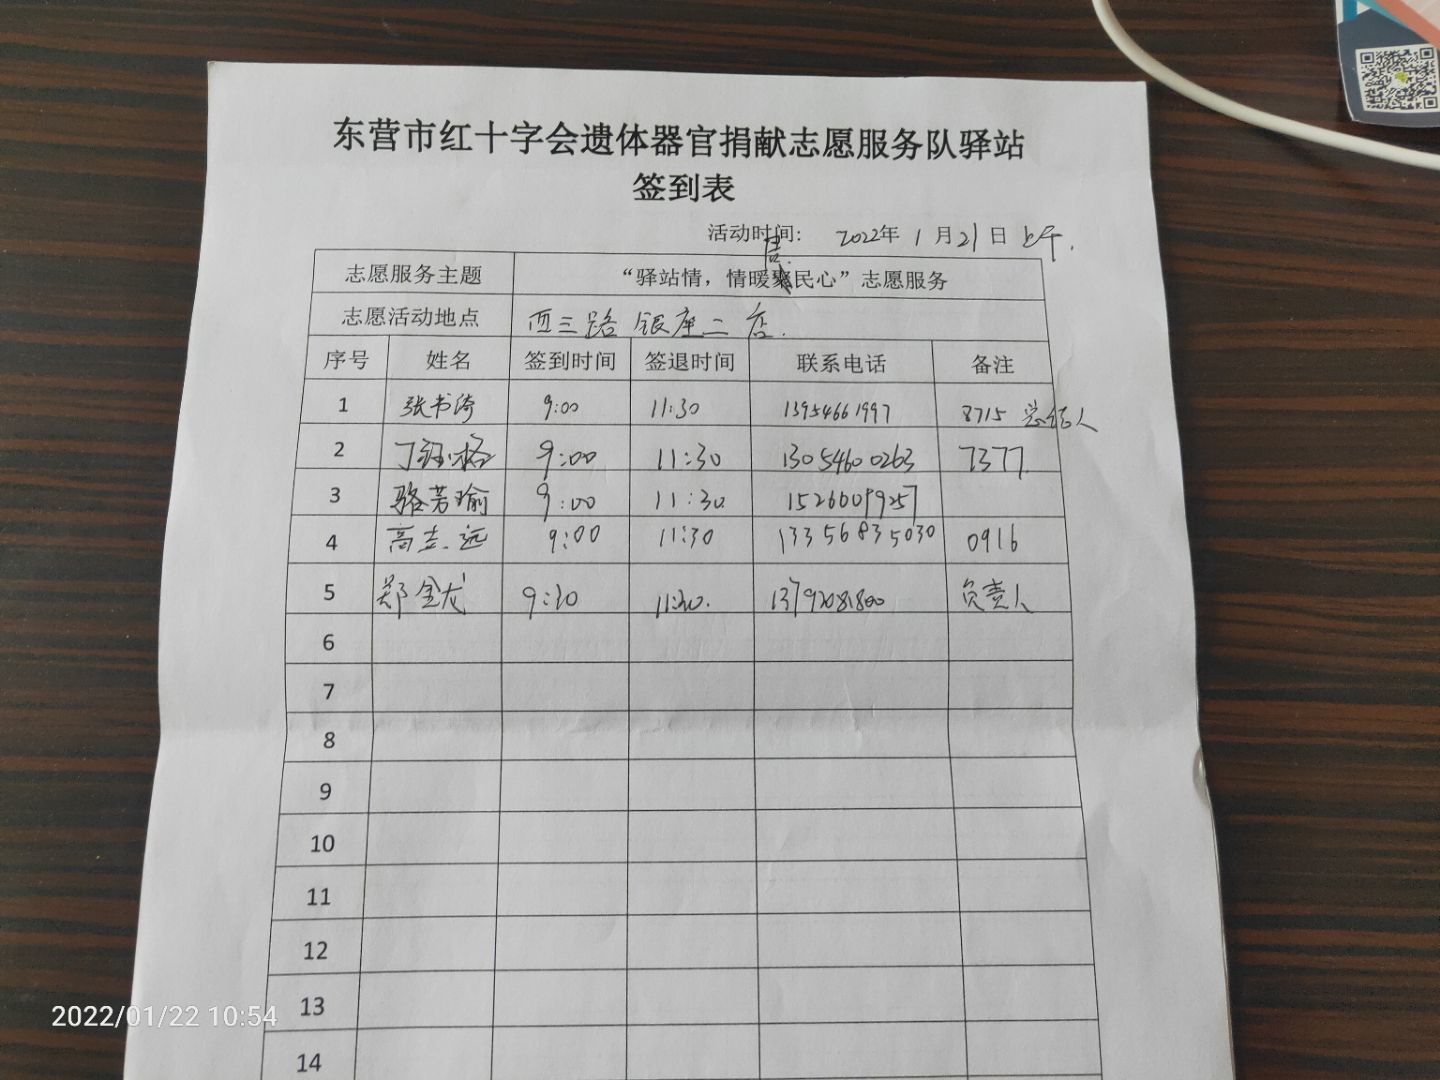 东营市红十字会遗体器官捐献志愿服务队驿站
签到表
活动时间: 2022年 1月21日 上午.
志愿服务主题 “驿站情，情暖居民心”志愿服务
志愿活动地点 西三路 银座二店.
序号 姓名 签到时间 签退时间 联系电话 备注
1 张书绮 9:00 11:30 13954661997 8715
2 9:00 11:30 13054600263 7377
3 骆芳瑜 9:00 11:30 15266009257
4 高志远 9:00 11:30 13356835030 0916
5 郑金龙 11:30. 负责人
6
7
8
9
10
11
12
13
14
2022/01/22 10:54